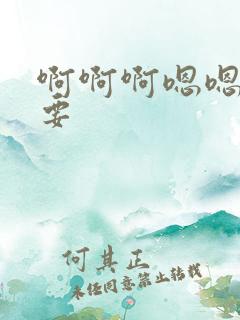 啊啊啊嗯嗯
要
何其正
未经同意禁止转载